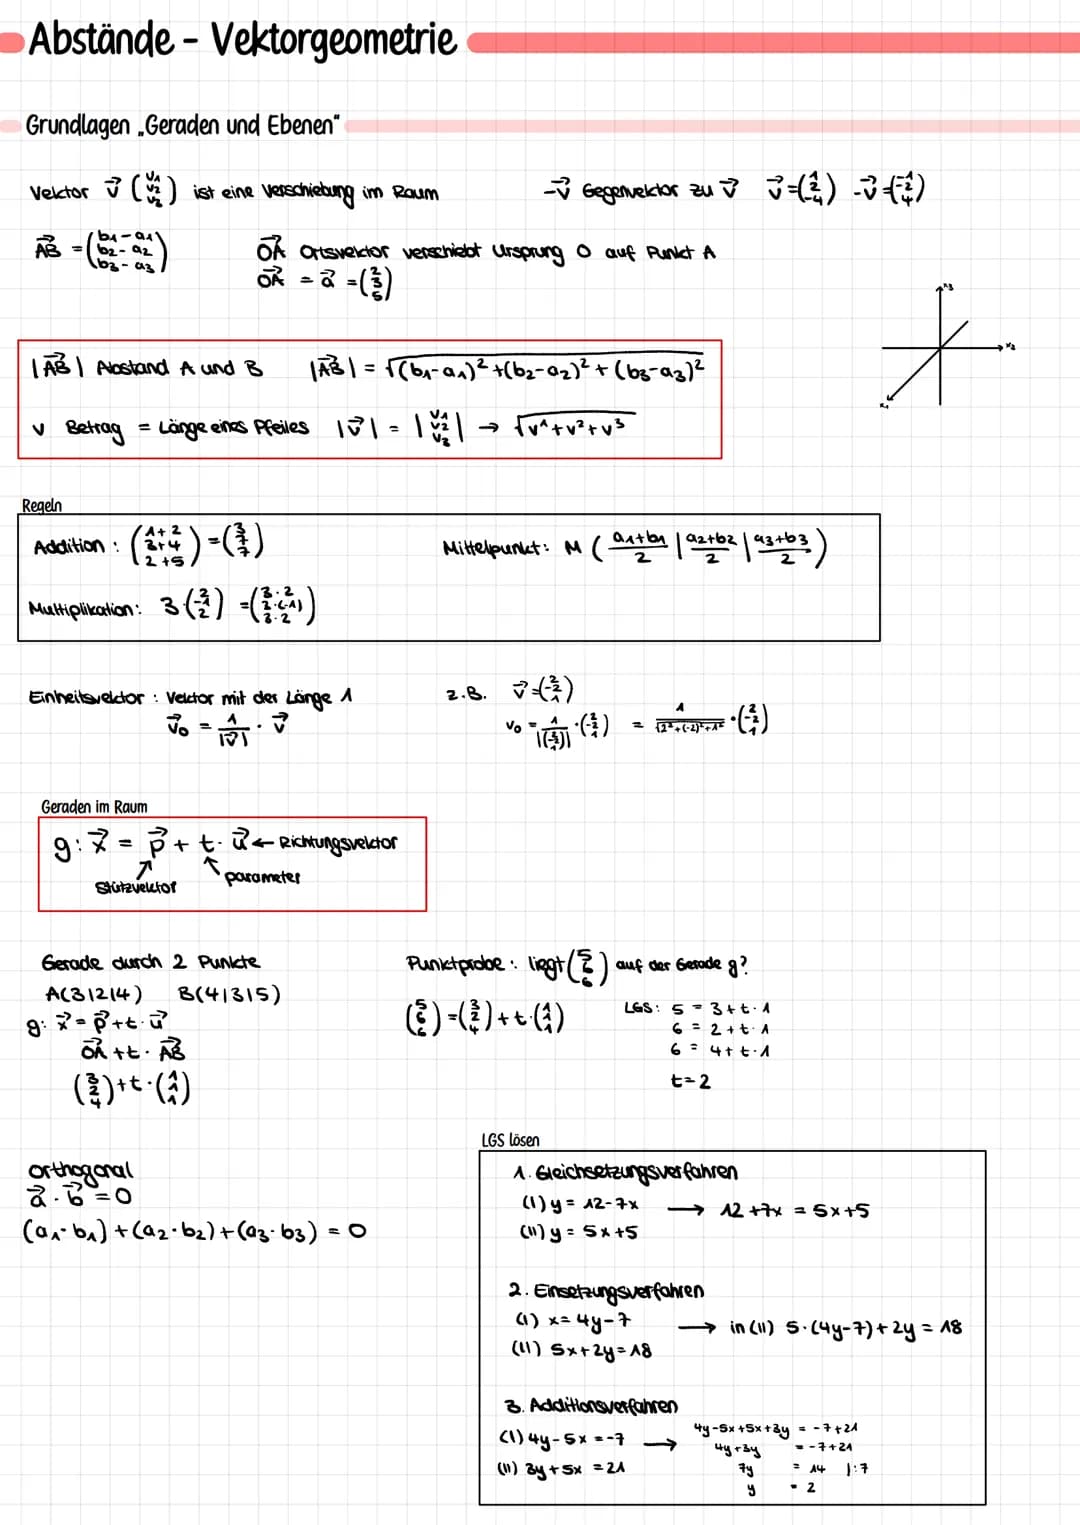 Abstände - Vektorgeometrie
Grundlagen „Geraden und Ebenen"
Vektor v⃗ (v₁ v₂ v₂) ist eine Verschiebung im Raum
-v⃗ Gegenvektor zu v⃗ v⃗ = (1 2 -4) -v⃗ = (-1 -2 4)
AB⃗ = (b₁-a₁ b₂-a₂ b₃-a₃)
OA⃗ Ortsvektor verschiebt Ursprung O auf Punkt A
OA⃗ = a⃗ = (2 3 5)
x₃
x₂
x₁
|AB⃗| Abstand A und B |AB⃗| = √(b₁-a₁)²+(b₂-a₂)²+(b₃-a₃)²
v Betrag = Länge eines Pfeiles |v⃗| = |v₁ v₂ v₃| → √v¹+v²+v³
Regeln
Addition: (1+2 3+4 2+5) = (3 7 7)
Mittelpunkt: M (a₁+b₁/2 | a₂+b₂/2 | a₃+b₃/2)
Multiplikation: 3·(2 -1 2) = (3·2 3·(-1) 3·2)
Einheitsvektor: Vektor mit der Länge 1
v⃗₀ = 1/|v⃗| · v⃗
z.B. v⃗ = (2 -2 1)
v₀ = 1/|(2 -2 1)| · (2 -2 1) = 1/√2²+(-2)²+1² · (2 -2 1)
Geraden im Raum
g: x⃗ = p⃗ + t · u⃗ ← Richtungsvektor
Stützvektor
parameter
Gerade durch 2 Punkte
A(3|2|4) B(4|3|5)
g: x⃗ = p⃗ + t · u⃗
OA⃗ + t · AB⃗
(3 2 4) + t · (1 1 1)
Punktprobe: liegt (5 6 6) auf der Gerade g?
(5 6 6) = (3 2 4) + t · (1 1 1)
LGS: 5 = 3+t·1
6 = 2+t·1
6 = 4+t·1
t=2
orthogonal
a⃗ · b⃗ = 0
(a₁·b₁)+(a₂·b₂)+(a₃·b₃) = 0
LGS lösen
1. Gleichsetzungsverfahren
(I) y = 12-7x → 12+7x = 5x+5
(II) y = 5x+5
2. Einsetzungsverfahren
(I) x = 4y-7
→ in (II) 5·(4y-7)+2y = 18
(II) 5x+2y = 18
3. Additionsverfahren
(I) 4y-5x = -7 →
(II) 3y+5x = 21
4y-5x+5x+3y = -7+21
4y+3y = -7+21
7y = 14 |:7
y = 2